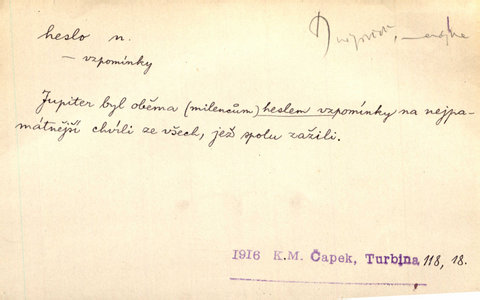 heslo n.
— vzpomínky
Jupiter byl oběma (milencům) heslem vzpomínky na nejpa-
mátnější chvíli ze všech, jež spolu zažili.
1916 K.M. Čapek, Turbina 118, 18.